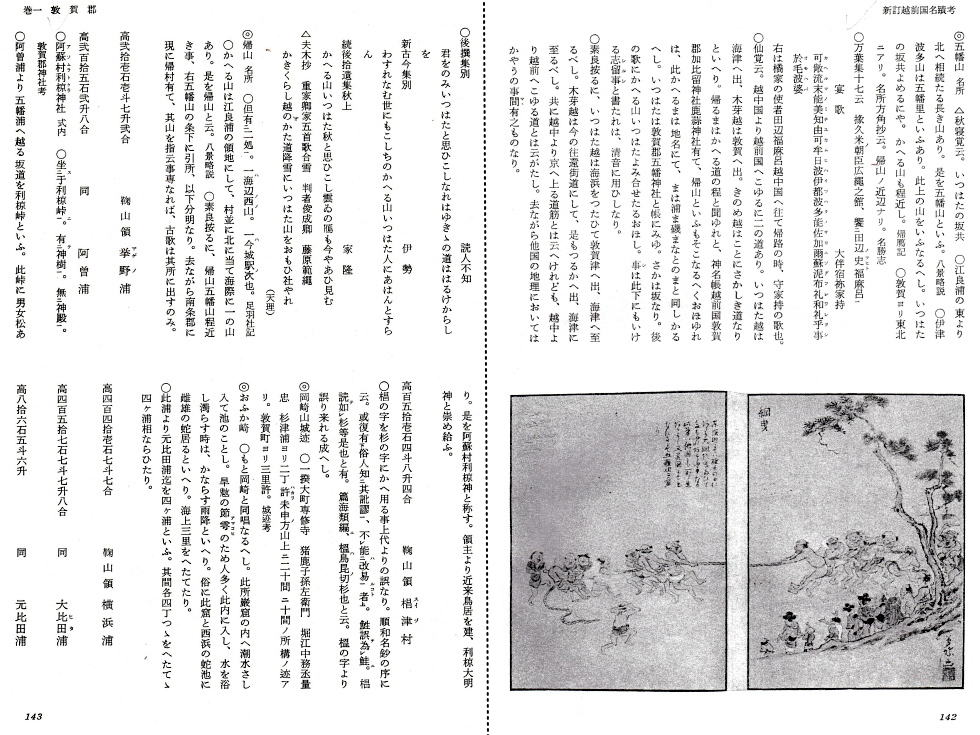 新訂越前国名蹟考
◎五幡山 名所 △秋寝覚云。いつはたの坂共 ○江良浦の東より
北へ相続たる長き山あり。是を五幡山といふ。八景略説 ○伊津
波多山は五幡里といふあり。此上の山をいふなるへし。いつはた
の坂共よめるにや。かへる山も程近し。帰鴈記 ○敦賀ヨリ東北
ニアリ。名所方角抄云。帰山ノ近辺ナリ。名勝志
○万葉集十七云 掾久米朝臣広縄之館、饗田辺史福麻呂
宴歌 大伴宿祢家持
可敝流未能美知由可牟日波伊都波多能佐加爾蘇泥布礼和礼乎事
於毛波婆
右は橘家の使者田辺福麻呂越中国へ往て帰路の時、守家持の歌也。
○仙覚云。越中国より越前国へこゆるに二の道あり。いつはた越は
海津へ出、木芽越は敦賀へ出。きのめ越はことにさかしき道なり
といへり。帰るまはかへる道の程と聞ゆれと、神名帳越前国敦賀
郡加比留神社鹿蒜神社有て、帰山といふもそこなるへくおほゆれ
は、此かへるまは地名にて、まは浦ま磯まなとのまと同しかる
へし。いつはたは敦賀郡五幡神社と帳にみゆ。さかは坂なり。後
の歌にかへる山いつはたよみ合せたるおほし。事は此下にもいけ
る志留事と書たれは、清音に用ひしなり。
○素良按るに、いつはた越は海浜をつたひて敦賀津へ出、海津へ至
るべし。木芽越は今の往還街道にして、是もつるかへ出、海津に
至るべし。共に越中より京へ上る道筋とは云へけれども、越中よ
り越前へこゆる道とは云がたし。去ながら他国の地理においては
かやうの事間有之ものなり。
142
巻一 敦賀郡
○後撰集別 読人不知
君をのみいつはたと思ひこしなれはゆきゝの道ははるけからし
を
新古今集別 伊勢
わすれなむ世にもこしちのかへる山いつはた人にあはんとすら
ん
続後拾遺集秋上 家隆
かへる山いつはた秋と思ひこし雲ゐの鴈も今やあひ見む
△夫木抄 重家卿家五首歌合雪 判者俊成卿 藤原範縄
かきくらし越のかた道降雪にいつはた山をおもひ社やれ
(天理)
◎帰山 名所 ○但有二処。一海辺西山。一今城駅次也。足羽社記
○かへる山は江良浦の領地にして、村並に北に当て海際に一の山
あり。是を帰山と云。八景略説 ○素良按るに、帰山五幡山程近
き事、右五幡山の条下に引所、以下分明なり。去ながら南条郡に
現に帰村有て、其山を指云事専なれば、古歌は其所に出すのみ。
高弐拾壱石壱斗七升弐合 鞠山領 挙野浦
高弐百拾五石弐斗八合 同 阿曽浦
◎阿蘇村利椋神社 式内 ○坐于利椋峠。有神樹。無神殿。
敦賀郡神社考
○阿曽浦より五幡浦へ越る坂道を利椋峠といふ。此峠に男女松あ
り。是を阿蘇村利椋神と称す。領主より近来鳥居を建、利椋大明
神と崇め給ふ。
高百五拾壱石四斗八升四合 鞠山領 椙津村
○椙の字を杉の字にかへ用る事上代よりの誤なり。順和名鈔の序に
云。或復有俗人知其訛謬、不能改易者。鮏誤為鮭。椙
読如杉等是也と有。篇海類編、榲鳥昆切杉也と云。榲の字より
誤り来れる成へし。
◎岡崎山城迹 ○一揆大町専修寺 猪鹿子孫左衛門 堀江中務丞量
忠 杉津浦ヨリ二丁許未申方山上ニ二十間ニ十間ノ所構ノ迹ア
リ。敦賀町ヨリ三里許。城迹考
◎おふか崎 ○もと岡崎と同唱なるへし。此所巌窟の内へ潮水さし
入て池のことし。旱魃の節雩のため人多く此内に入し、水を浴
し濁らす時は、かならす雨降といへり。俗に此窟と西浜の蛇池に
雌雄の蛇居るといへり。海上三里をへたてたり。
○此浦より元比田浦迄を四ケ浦といふ。其間各四丁つゝをへたてゝ
四ケ浦相ならひたり。
高四百四拾壱石七斗七合 鞠山領 横浜浦
高四百五拾七石七斗七升八合 同 大比田浦
高八拾六石五斗六升 同 元比田浦
143